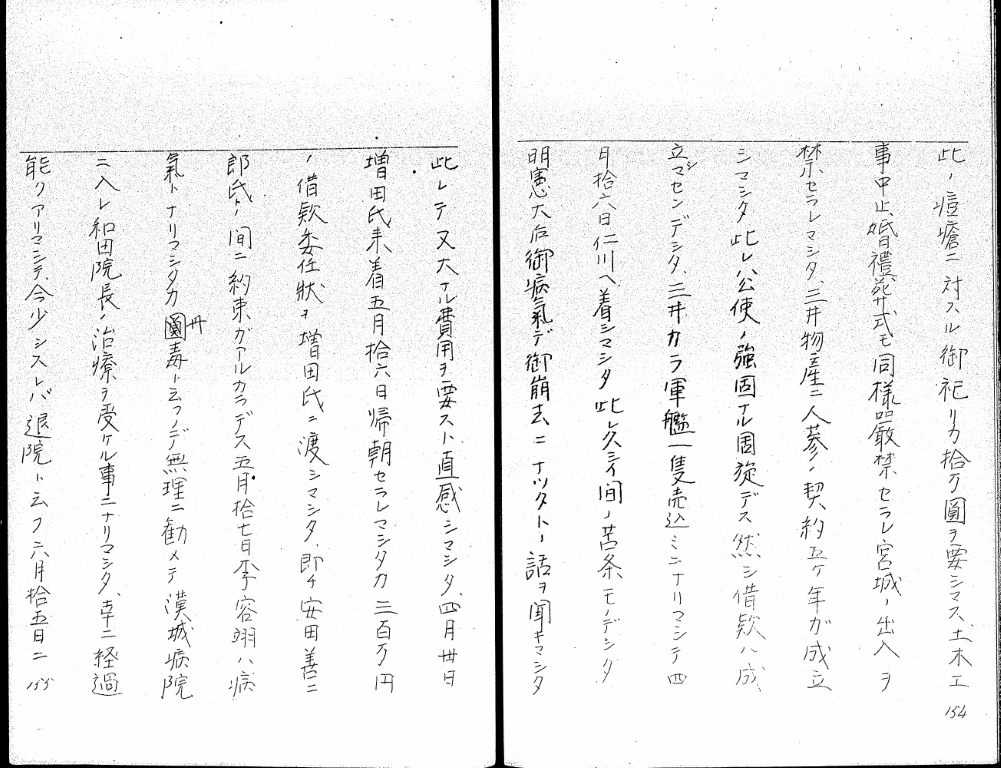 此ノ痘瘡ニ対スル御祀リカ拾万圓ヲ要シマス、土木工
事中止、婚禮、葬式モ同様ニ厳禁セラレ、宮城ノ出入ヲ
禁セラレマシタ、三井物産ニ人蔘ノ契約五ヶ年ガ成立
シマシタ、此レハ公使ノ強固ナル周旋デス、然シ借款ハ成
立シマセンデシタ、三井カラ軍艦一隻売込ミニナリマシテ四
月拾六日仁川ヘ着シマシタ、此レ久シイ間ノ苦条モノデシタ
明憲大后御病氣デ御崩去ニナツタトノ話ヲ聞キマシタ
154
此レテ又大ナル費用ヲ要スト直感シマシタ、四月卅日
増田氏来着五月拾六日帰朝セラレマシタカ三百万円
ノ借款委任狀ヲ増田氏ニ渡シマシタ、即チ安田善二
郎氏トノ間ニ約束ガアルカラデス五月拾七日李容翊ハ病
氣トナリマシタカ圓毒ト云フノデ無理ニ勧メテ漢城病院
ニ入レ和田院長ノ治療ヲ受ケル事ニナリマシタ、幸ニ経過
能クアリマシテ、今少シスレバ退院ト云フ六月拾五日ニ
155